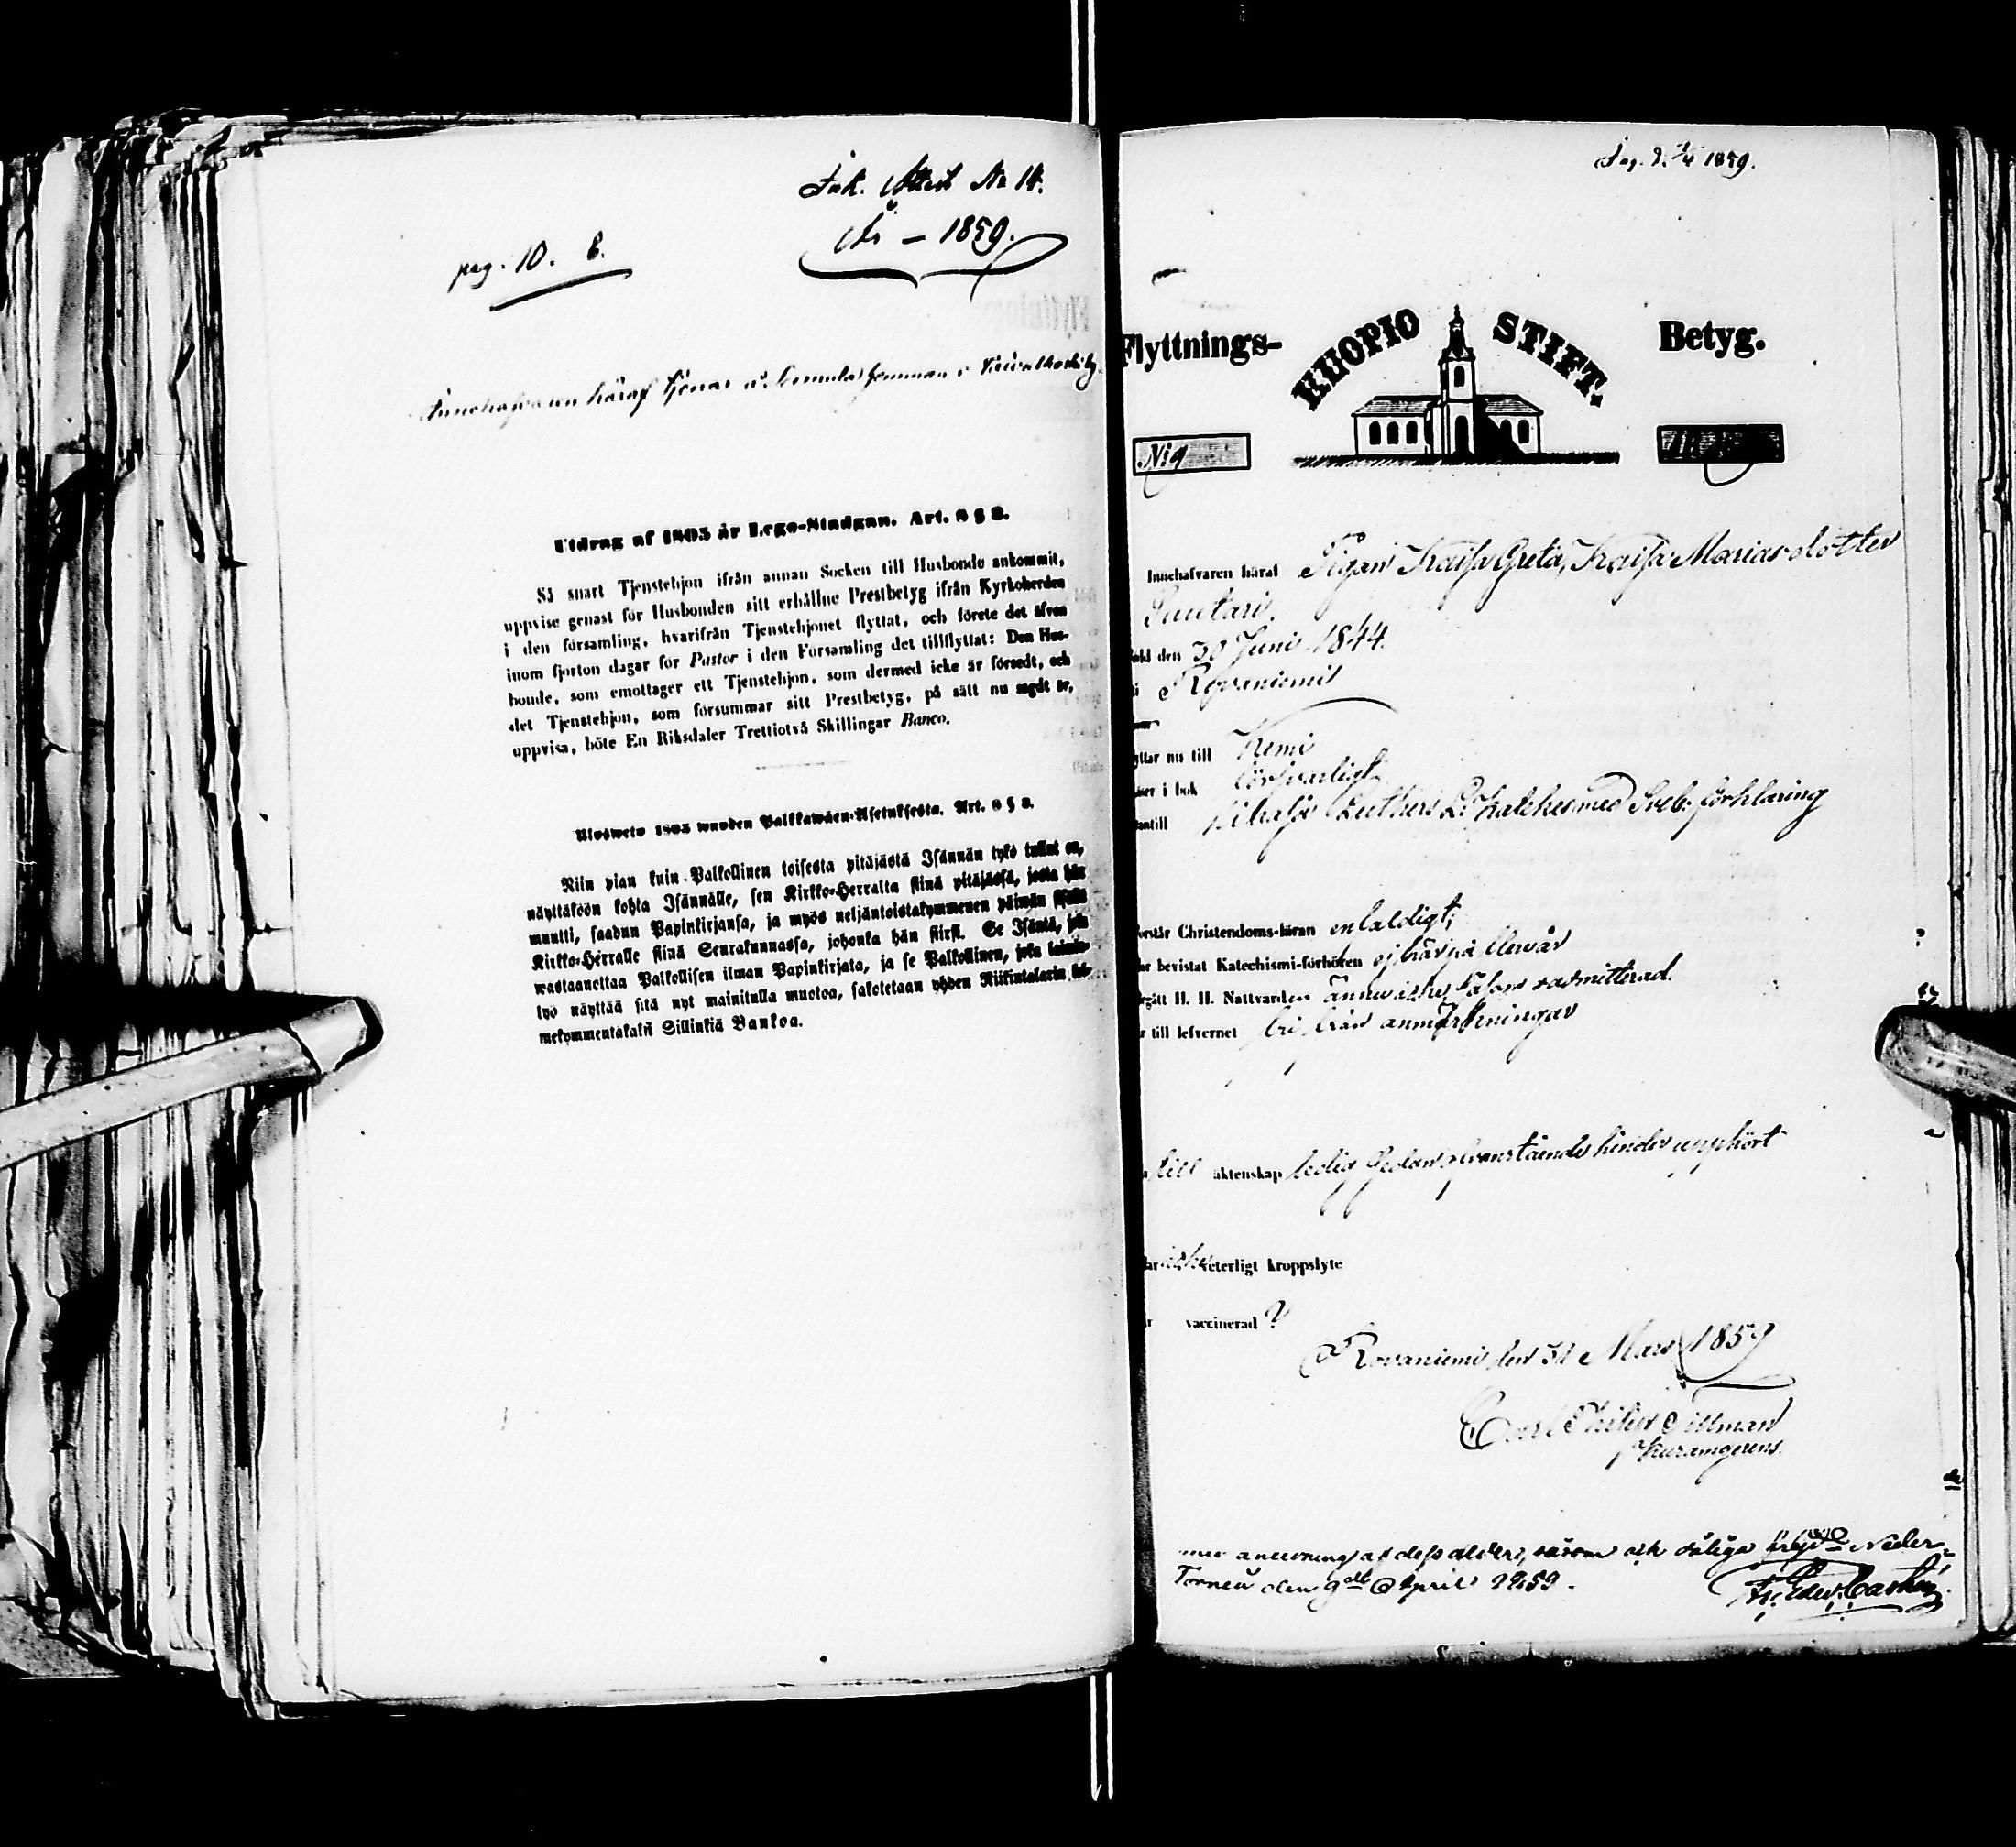 Ink. Attest No 14.
År — 1859.
pag. 10. 8.
Innehafvaren häraf tjenar å hemman i
Utdrag af 1805 år Lego-Stadgan. Art. 8 § 2.
Så snart Tjenstehjon ifrån annan Socken till Husbonde ankommit,
uppvise genast för Husbonden sitt erhållne Prestbetyg ifrån Kyrkoherden
i den församling, hvarifrån Tjenstehjonet flyttat, och förete det äfven
inom fjorton dagar för Pastor i den Forsamling det tillflyttat: Den Hus-
bonde, som emottager ett Tjenstehjon, som dermed icke är försedt, och
det Tjenstehjon, som försummar sitt Prestbetyg, på sätt nu sagdt är,
uppvisa, böte En Riksdaler Trettiotvå Skillingar Banco.
Ulosweto 1805 wuoden Palkkawäen-Asetuksesta. Art. 8 § 2.
Niin pian kuin Palkollinen toisesta pitäjästä Isännän tykö tullut on,
näyttäköön kohta Isännälle, sen Kirkko-Herralta siinä pitäjässä, josta hän
muutti, saadun Papinkirjansa, ja myös neljäntoistakymmenen päiwän sisällä
Kirkko-Herralle siinä Seurakunnassa, johonka hän siirsi. Se Isäntä, joka
wastaanottaa Palkollisen ilman Papinkirjata, ja se Palkollinen, joka laimin-
lyö näyttää sitä nyt mainitulla muotoa, sakotetaan yhden Riikintalarin kol-
mekymmentäkaksi Sillinkiä Bankoa.
1859.
Flyttnings- KUOPIO STIFT. Betyg.
No 9
Innehafvaren häraf Pigan Kaisa Greta, Kaisa Mariasdotter
född den 30 Juni 1844.
i Rovaniemi
flyttar nu till Kemi
läser i bok försvarligt
utantill Luthers L. Kateches med Sveb. förklaring
förstår Christendoms-läran enfaldigt;
har bevistat Katechismi-förhören ej härpå
begått H. H. Nattvarden ännu icke admitterad.
till lefvernet fri från anmärkningar
till äktenskap ledig sedan ofvanstående hinder upphört
har icke veterligt kroppslyte
är vaccinerad ?
Rovaniemi den 31 Mars 1859
Carl
af dess ålder, såsom och
Torneå den 9de April 1859.